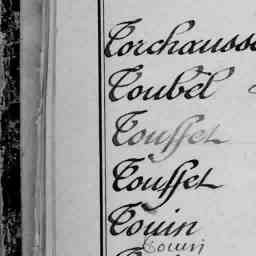 Torchausse
Toubel
Touffet
Touffet
Touin